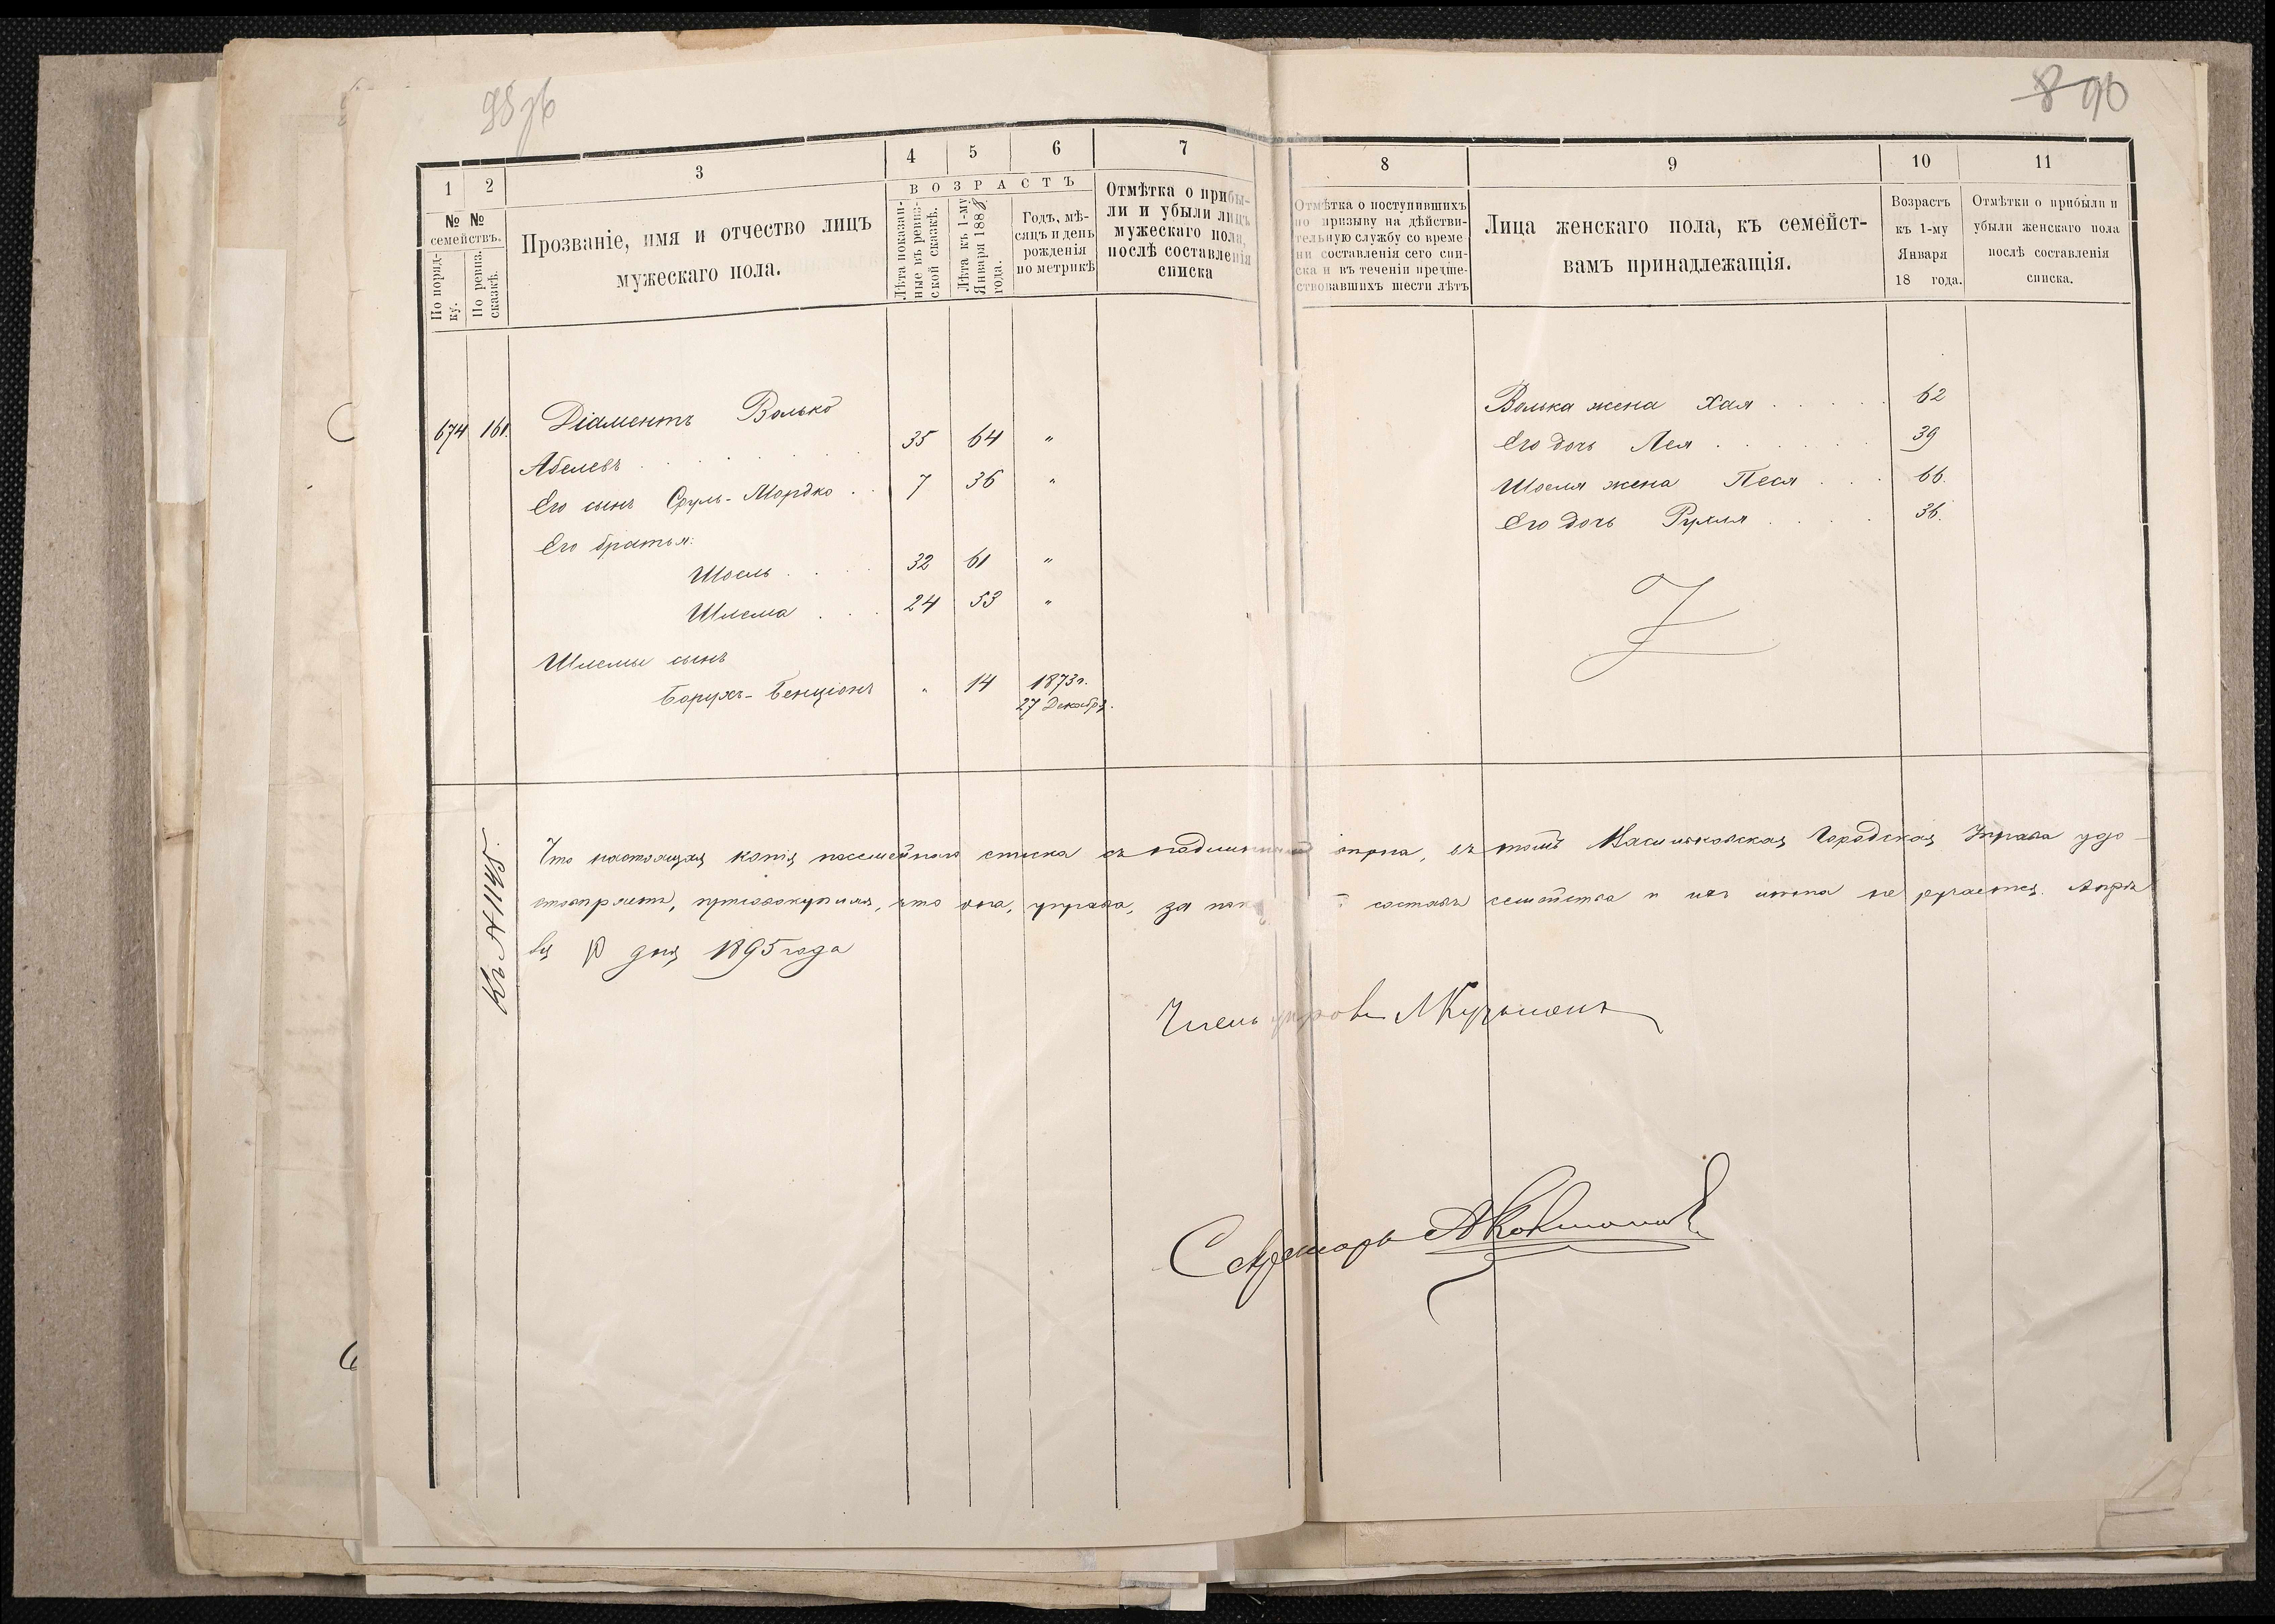 8 90
1
2
3
4
5
6
7
8
9
10
11
№ №
семействъ.
По поряд-
ку.
По ревиз.
сказкѣ.
Прозваніе, имя и отчество лицъ
мужескаго пола.
ВОЗРАСТЪ
Лѣта показан-
ные въ ревиз-
ской сказкѣ.
Лѣта къ 1-му
Января 1888
года.
Годъ, мѣ-
сяцъ и день
рожденія
по метрикѣ
Отмѣтка о прибы-
ли и убыли лицъ
мужескаго пола,
послѣ составленія
списка
Отмѣтка о поступившихъ
по призыву на дѣйстви-
тельную службу со време-
ни составленія сего спи-
ска и въ теченіи предше-
ствовавшихъ шести лѣтъ
Лица женскаго пола, къ семейст-
вамъ принадлежащія.
Возрастъ
къ 1-му
Января
18 года.
Отмѣтки о прибыли и
убыли женскаго пола
послѣ составленія
списка.
674 161. Діаментъ Волько
Абелевъ . . . . . . 35 64 "
Его сынъ Сруль-Мордко . . 7 36 "
Его братья:
Шоель . . . . 32 61 "
Шлема . . . 24 53 "
Шлемы сынъ
Борухъ-Бенціонъ " 14 1873г.
27 Декабря.
Волька жена Хая . . . . . 62
Его дочь Лея . . . . . . 39
Шоеля жена Песя . . . 66.
Его дочь Рухля . . . . 36.
Къ № 1145.
Что настоящая копія посемейнаго списка съ подлиннымъ вѣрна, въ томъ Васильковская Городская Управа удо-
стовѣряетъ, присовокупляя, что она, управа, за составъ семейства и не ручается. Апрѣ-
ля 10 дня 1895 года
Членъ управы
Секретарь